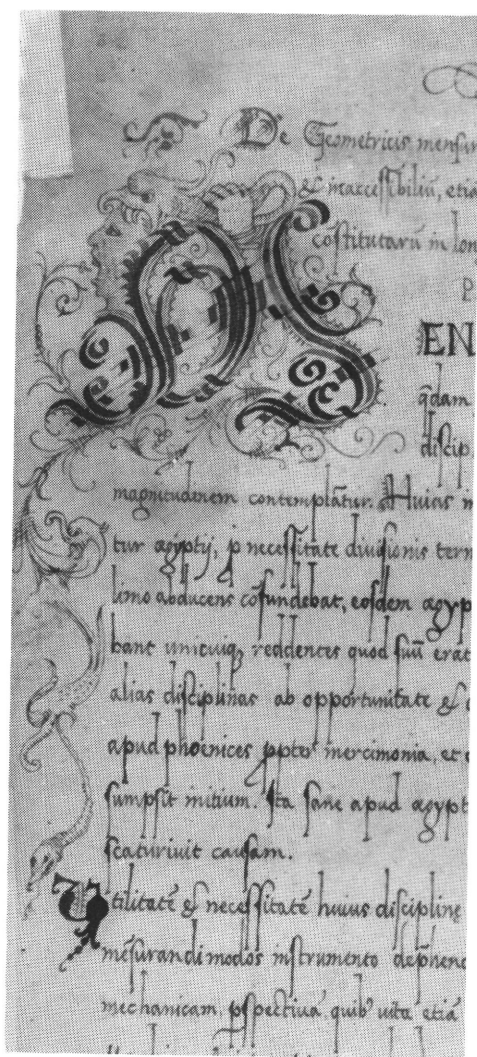 De Geometricis mensur
& inaccessibiliũ, etia
cõstitutarũ in lon
P
EN
q̃dam
discip
magnitudinem contemplãtur. Huius in
tur ægyptij, p necessitate diuisionis term
limo abducens cõfundebat, eosdem ægyp
bant unicuiq; reddentes quod suũ erat
alias disciplinas ab opportunitate &
apud phoenices ppter mercimonia, et
sumpsit initium. Ita sane apud ægypt
scaturiuit causam.
Vtilitatẽ & necessitatẽ huius discipline
mẽsurandi modos instrumento deph̃end
mechanicam, pspectiuã, quib' uita etiã